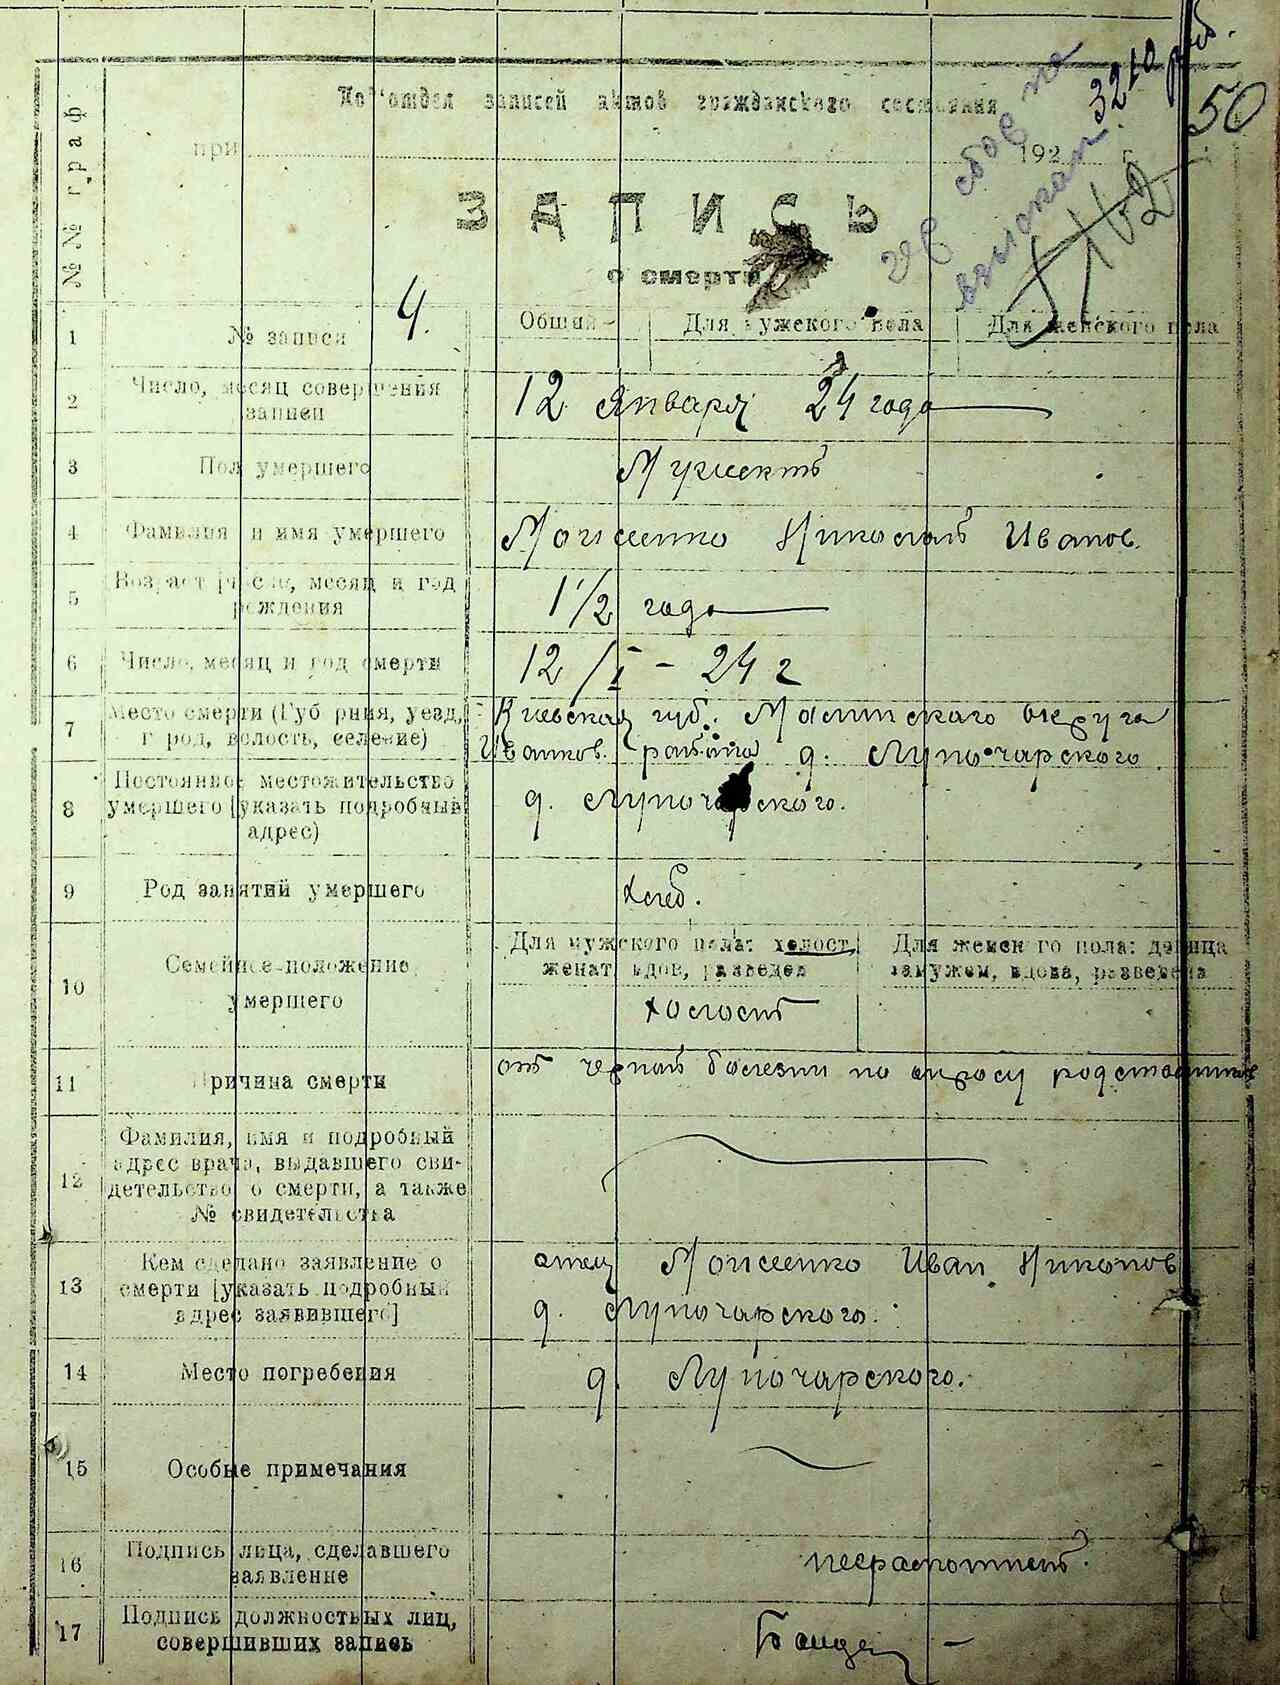 50
32 10 руб.
Подотдел записей актов гражданского состояния
при 192 г.
ЗАПИСЬ
о смерти
№№ граф
1 № записи 4. Общий Для мужского пола Для женского пола
2 Число, месяц совершения записи 12 Января 24 года
3 Пол умершего
4 Фамилия и имя умершего Моисеенко Николай Иванов.
5 Возраст (число, месяц и год рождения 1 1/2 года
6 Число, месяц и год смерти 12/I - 24 г
7 Место смерти (Губерния, уезд, город, волость, селение) Киевская губ. Малинскаго округа
Иванков. района д. Луночарского
8 Постоянное местожительство умершего [указать подробный адрес) д. Луночарского.
9 Род занятий умершего хлеб.
10 Семейное положение умершего Для мужского пола: холост, женат, вдов, разведен Для женского пола: девица, замужем, вдова, разведена
холост
11 Причина смерти от черной болезни по опросу
12 Фамилия, имя и подробный адрес врача, выдавшего свидетельство о смерти, а также № свидетельства
13 Кем сделано заявление о смерти [указать подробный адрес заявившего] отец Моисеенко Иван
д. Луночарского.
14 Место погребения д. Луночарского.
15 Особые примечания
16 Подпись лица, сделавшего заявление неграмотный.
17 Подпись должностных лиц, совершивших запись